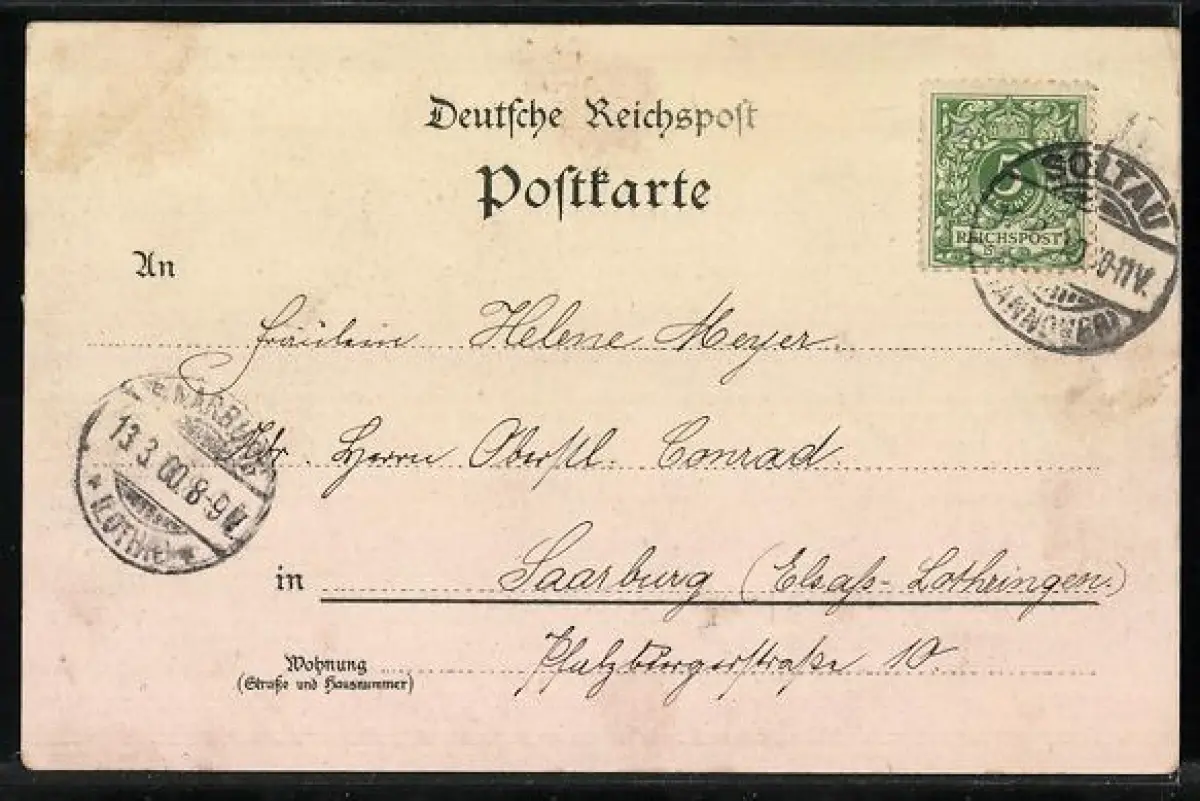 Deutsche Reichspost
Postkarte
5
REICHSPOST
SOLTAU
10-11V.
(HANNOVER)
An
Fräulein Helene Meyer
Adr. Herrn Oberstl. Conrad
SAARBURG
13.3.00.8-9V.
(LOTHR.)
in Saarburg (Elsaß-Lothringen.)
Wohnung Pfalzburgerstraße 10.
(Straße und Hausnummer)